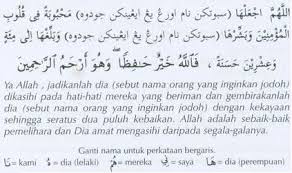 اللَّهُمَّ اجْعَلْهَا (سبوتكن نام اورڠ يڠ ايڠينكن جودوه) مَحْبُوبَةً فِي قُلُوبِ
الْمُؤْمِنِيْنَ وَبَشِّرْهَا (سبوتكن نام اورڠ يڠ ايڠينكن جودوه) وَبَلِّغْهَا إِلَى مِئَةٍ
وَعِشْرِيْنَ حَسَنَةً ، فَاللَّهُ خَيْرٌ حَفِظًا وَهُوَ أَرْحَمُ الرَّاحِمِيْنَ
Ya Allah , jadikanlah dia (sebut nama orang yang inginkan jodoh)
dikasihi pada hati-hati mereka yang beriman dan gembirakanlah
dia (sebut nama orang yang inginkan jodoh) dengan kekayaan
sehingga seratus dua puluh kebaikan. Allah adalah sebaik-baik
pemelihara dan Dia amat mengasihi daripada segala-galanya.
Ganti nama untuk perkataan bergaris.
نَا = kami هُ = dia (lelaki) هُمْ = mereka نِي = saya هَا = dia (perempuan)